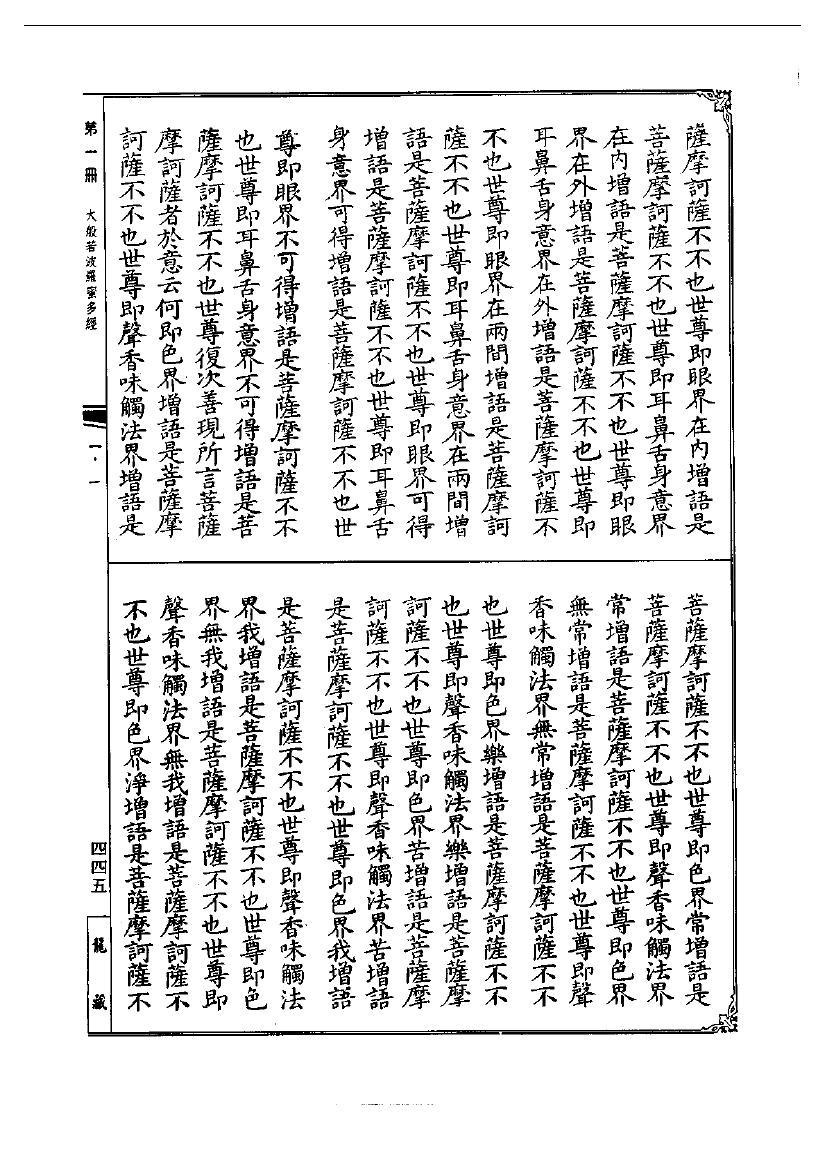 薩摩訶薩不不也世尊即眼界在內增語是
菩薩摩訶薩不不也世尊即耳鼻舌身意界
在內增語是菩薩摩訶薩不不也世尊即眼
界在外增語是菩薩摩訶薩不不也世尊即
耳鼻舌身意界在外增語是菩薩摩訶薩不
不也世尊即眼界在兩間增語是菩薩摩訶
薩不不也世尊即耳鼻舌身意界在兩間增
語是菩薩摩訶薩不不也世尊即眼界可得
增語是菩薩摩訶薩不不也世尊即耳鼻舌
身意界可得增語是菩薩摩訶薩不不也世
尊即眼界不可得增語是菩薩摩訶薩不不
也世尊即耳鼻舌身意界不可得增語是菩
薩摩訶薩不不也世尊復次善現所言菩薩
摩訶薩者於意云何即色界增語是菩薩摩
訶薩不不也世尊即聲香味觸法界增語是
菩薩摩訶薩不不也世尊即色界常增語是
菩薩摩訶薩不不也世尊即聲香味觸法界
常增語是菩薩摩訶薩不不也世尊即色界
無常增語是菩薩摩訶薩不不也世尊即聲
香味觸法界無常增語是菩薩摩訶薩不不
也世尊即色界樂增語是菩薩摩訶薩不不
也世尊即聲香味觸法界樂增語是菩薩摩
訶薩不不也世尊即色界苦增語是菩薩摩
訶薩不不也世尊即聲香味觸法界苦增語
是菩薩摩訶薩不不也世尊即色界我增語
是菩薩摩訶薩不不也世尊即聲香味觸法
界我增語是菩薩摩訶薩不不也世尊即色
界無我增語是菩薩摩訶薩不不也世尊即
聲香味觸法界無我增語是菩薩摩訶薩不
不也世尊即色界淨增語是菩薩摩訶薩不
第一冊 大般若波羅蜜多經
一·一
四四五
龍藏